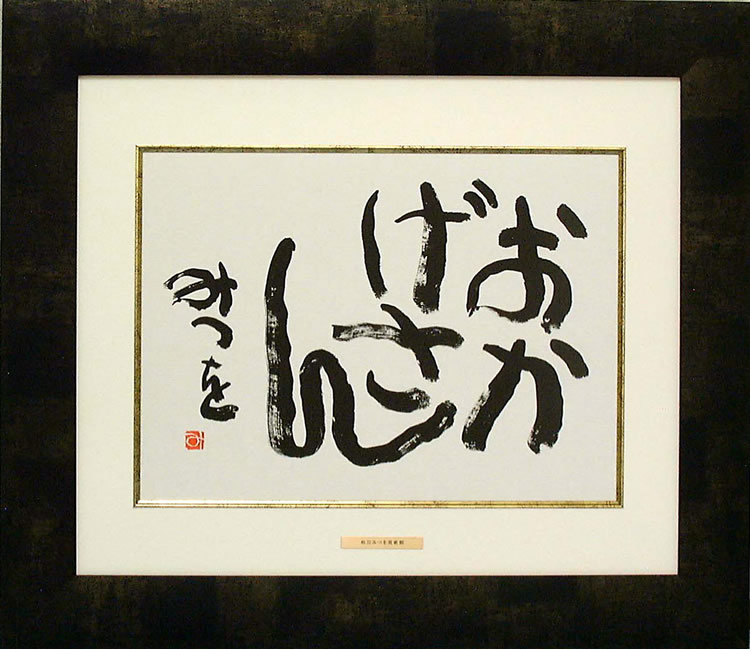 おか
げさ
ん
みつを
相田みつを美術館